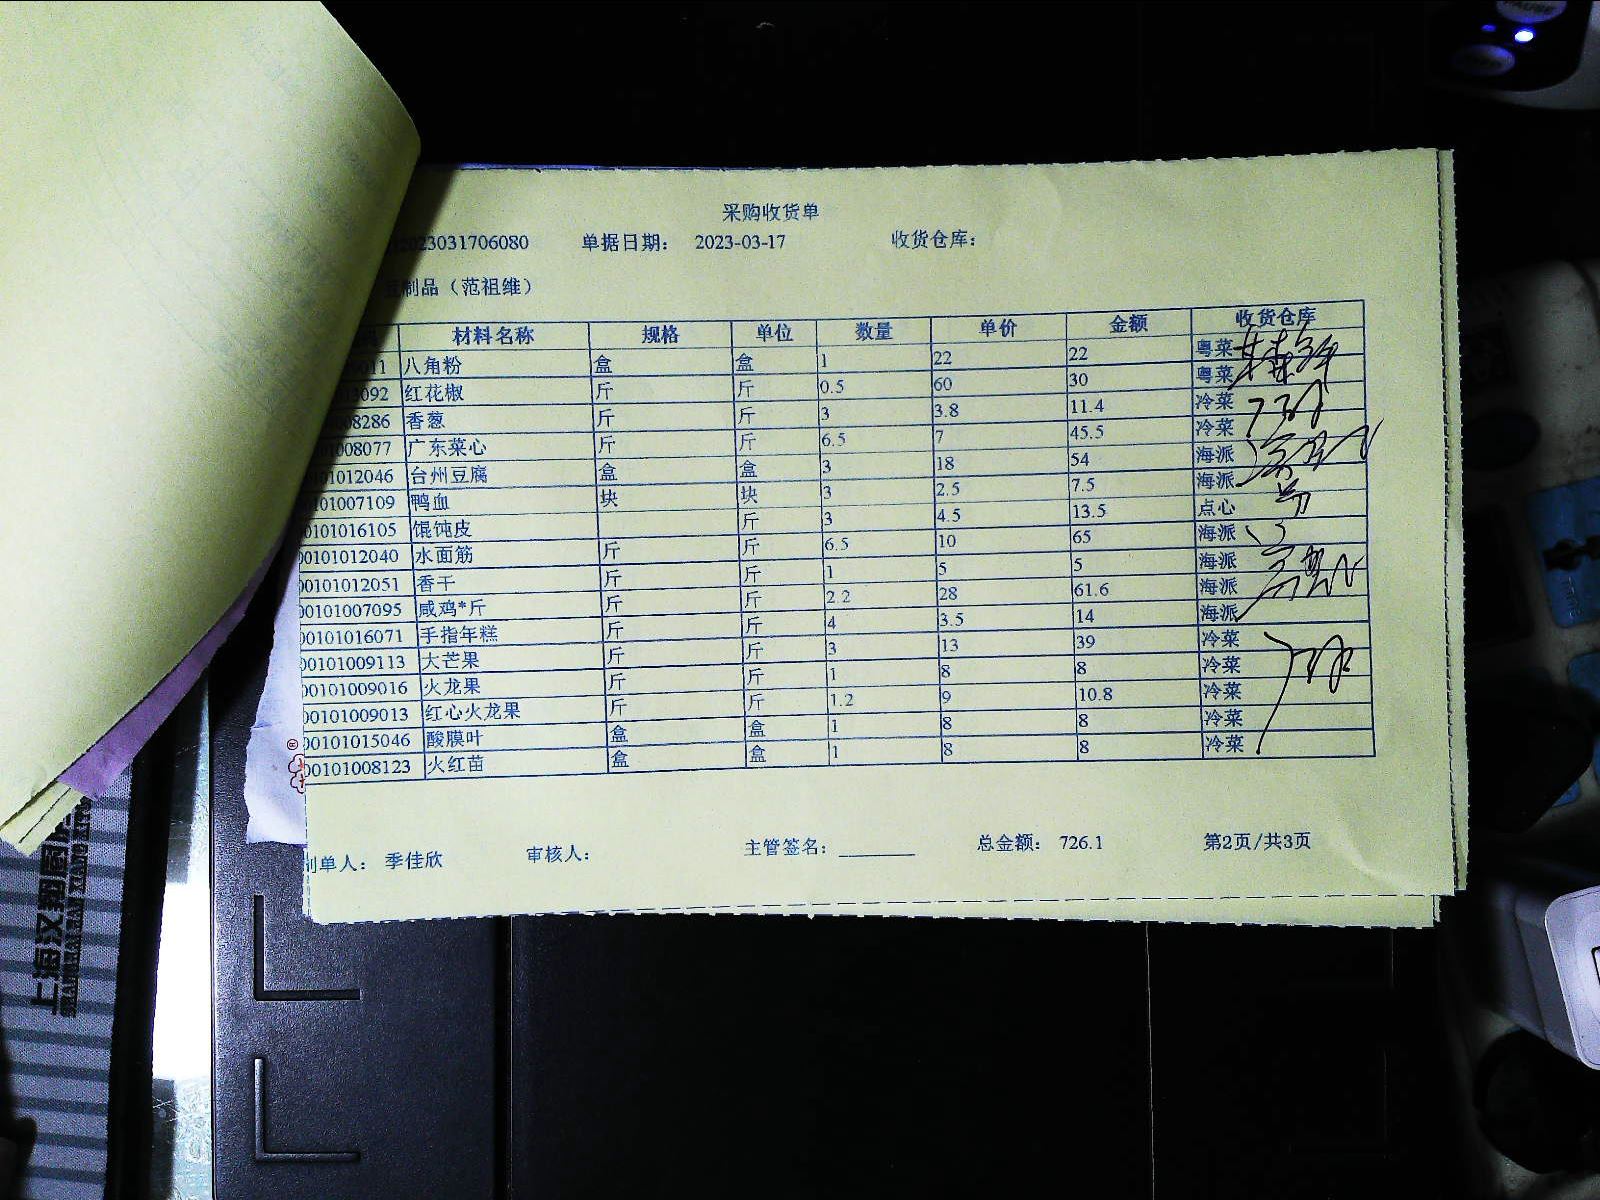 采购收货单
2023031706080 单据日期： 2023-03-17 收货仓库：
制品（范祖维）
材料名称 规格 单位 数量 单价 金额 收货仓库
011 八角粉 盒 盒 1 22 22 粤菜
092 红花椒 斤 斤 0.5 60 30 粤菜
08286 香葱 斤 斤 3 3.8 11.4 冷菜
008077 广东菜心 斤 斤 6.5 7 45.5 冷菜
101012046 台州豆腐 盒 盒 3 18 54 海派
101007109 鸭血 块 块 3 2.5 7.5 海派
0101016105 馄饨皮 斤 3 4.5 13.5 点心
00101012040 水面筋 斤 斤 6.5 10 65 海派
00101012051 香干 斤 斤 1 5 5 海派
00101007095 咸鸡*斤 斤 斤 2.2 28 61.6 海派
00101016071 手指年糕 斤 斤 4 3.5 14 海派
00101009113 大芒果 斤 斤 3 13 39 冷菜
00101009016 火龙果 斤 斤 1 8 8 冷菜
00101009013 红心火龙果 斤 斤 1.2 9 10.8 冷菜
00101015046 酸膜叶 盒 盒 1 8 8 冷菜
00101008123 火红苗 盒 盒 1 8 8 冷菜
制单人： 季佳欣 审核人： 主管签名：________ 总金额： 726.1 第2页/共3页
上海汉翔國
SHANGHAI HAN XIANG